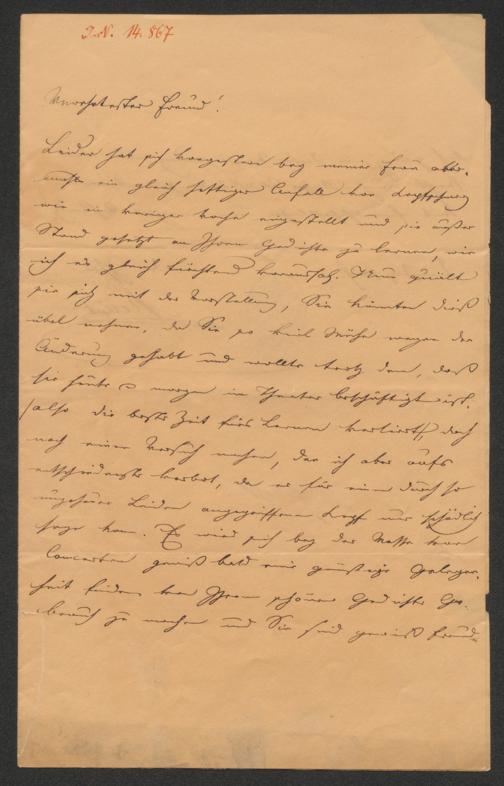 I.N. 14.867
Verehrtester Freund!
Leider hat sich vorgestern bey meiner Frau aber-
mals ein gleich heftiger Anfall von Kopfschmerz
wie in voriger Woche eingestellt und sie außer
Stand gesetzt an Ihrem Gedichte zu lernen, wie
ich es gleich fürchtend voraussah. Nun quält
sie sich mit der Vorstellung, Sie könnten dieß
übel nehmen, da Sie so viel Mühe wegen der
Änderung gehabt und wollte trotz dem, daß
sie heute u morgen im Theater beschäftigt ist,
/also die beste Zeit fürs Lernen verliert/, doch
noch einen Versuch machen, den ich aber aufs
entschiedenste verbot, da es für einen durch so
ungeheure Leiden angegriffenen Kopf nur schädlich
seyn kann. Es wird sich bey der Masse von
Concerten gewiß bald eine günstige Gelegen-
heit finden von Ihrem schönen Gedichte Ge-
brauch zu machen und Sie sind gewiß freund-